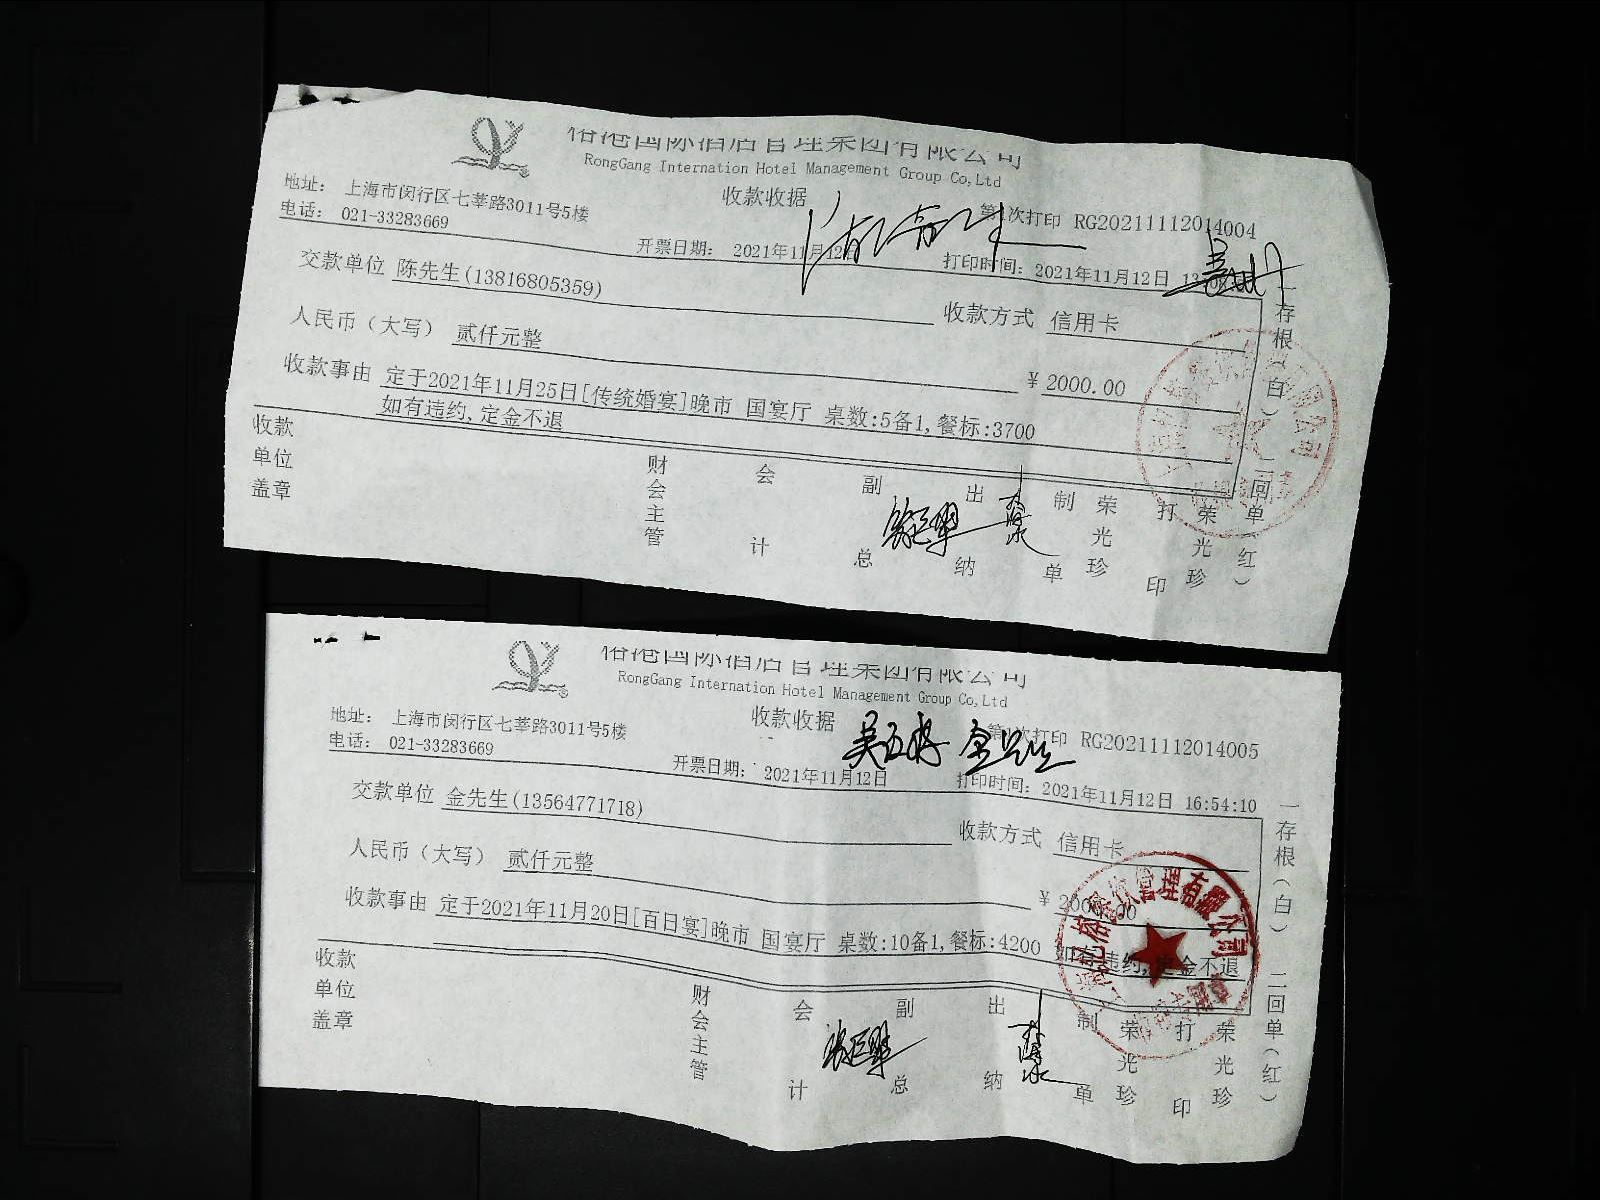 国际酒店管理集团有限公司
RongGang Internation Hotel Management Group Co,Ltd
收款收据
地址： 上海市闵行区七莘路3011号5楼
电话： 021-33283669
第1次打印 RG20211112014004
开票日期： 2021年11月12
打印时间：2021年11月12日
交款单位 陈先生(13816805359)
收款方式 信用卡
人民币（大写） 贰仟元整
¥ 2000.00
收款事由 定于2021年11月25日[传统婚宴]晚市 国宴厅 桌数:5备1,餐标:3700
如有违约,定金不退
收款单位盖章
财会主管
会计
副总
出纳
制单
荣光珍
打印
荣光珍
一存根（白） 二回单（红）
国际酒店管理集团有限公司
RongGang Internation Hotel Management Group Co,Ltd
收款收据
地址： 上海市闵行区七莘路3011号5楼
电话： 021-33283669
第1次打印 RG20211112014005
开票日期： 2021年11月12日
打印时间：2021年11月12日 16:54:10
交款单位 金先生(13564771718)
收款方式 信用卡
人民币（大写） 贰仟元整
¥ 2000.00
收款事由 定于2021年11月20日[百日宴]晚市 国宴厅 桌数:10备1,餐标:4200 如有违约,定金不退
管理有限公司
收款单位盖章
财会主管
会计
副总
出纳
制单
荣光珍
打印
荣光珍
一存根（白） 二回单（红）